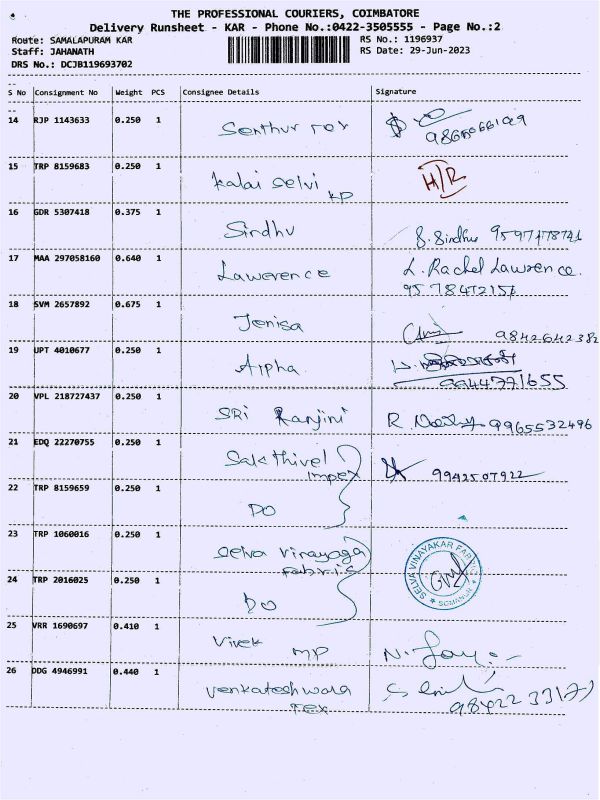 THE PROFESSIONAL COURIERS, COIMBATORE
Delivery Runsheet - KAR - Phone No.:0422-3505555 - Page No.:2
Route: SAMALAPURAM KAR RS No.: 1196937
Staff: JAHANATH RS Date: 29-Jun-2023
DRS No.: DCJB119693702
S No Consignment No Weight PCS Consignee Details Signature
14 RJP 1143633 0.250 1
Senthur Tex
15 TRP 8159683 0.250 1 H/R
Kalai Selvi KP
16 GDR 5307418 0.375 1
Sindhu S. Sindhu
17 MAA 297058160 0.640 1
Lawerence L. Rachel Lawrence.
18 SVM 2657892 0.675 1
Jenisa 9842642382
19 UPT 4010677 0.250 1
Alpha 9944771655
20 VPL 218727437 0.250 1
SRI Ranjini R. 9965532496
21 EDQ 22270755 0.250 1
Sakthivel Impex 9942507922
22 TRP 8159659 0.250 1
DO
23 TRP 1060016 0.250 1
Selva Vinayaga Fabris
SELVA VINAYAKAR FABRICS
SOMANUR
24 TRP 2016025 0.250 1
DO
25 VRR 1690697 0.410 1
Vivek MP
26 DDG 4946991 0.440 1
Venkateshwara Tex